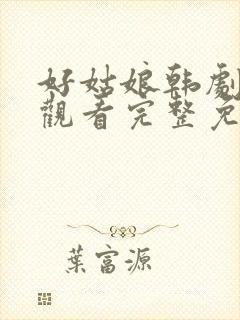 好姑娘韩劇
觀看完整免
葉富源